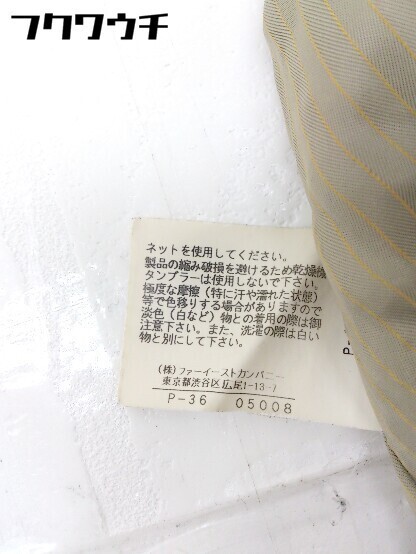 フクワウチ
ネットを使用してください。
製品の縮み破損を避けるため乾燥機
タンブラーは使用しないで下さい。
極度な摩擦（特に汗や濡れた状態）
等で色移りする場合がありますので
淡色（白など）物との着用の際は御
注意下さい。また、洗濯の際は白い
物と別にして下さい。
（株）ファーイーストカンパニー
東京都渋谷区広尾1-13-7
P-36 05008